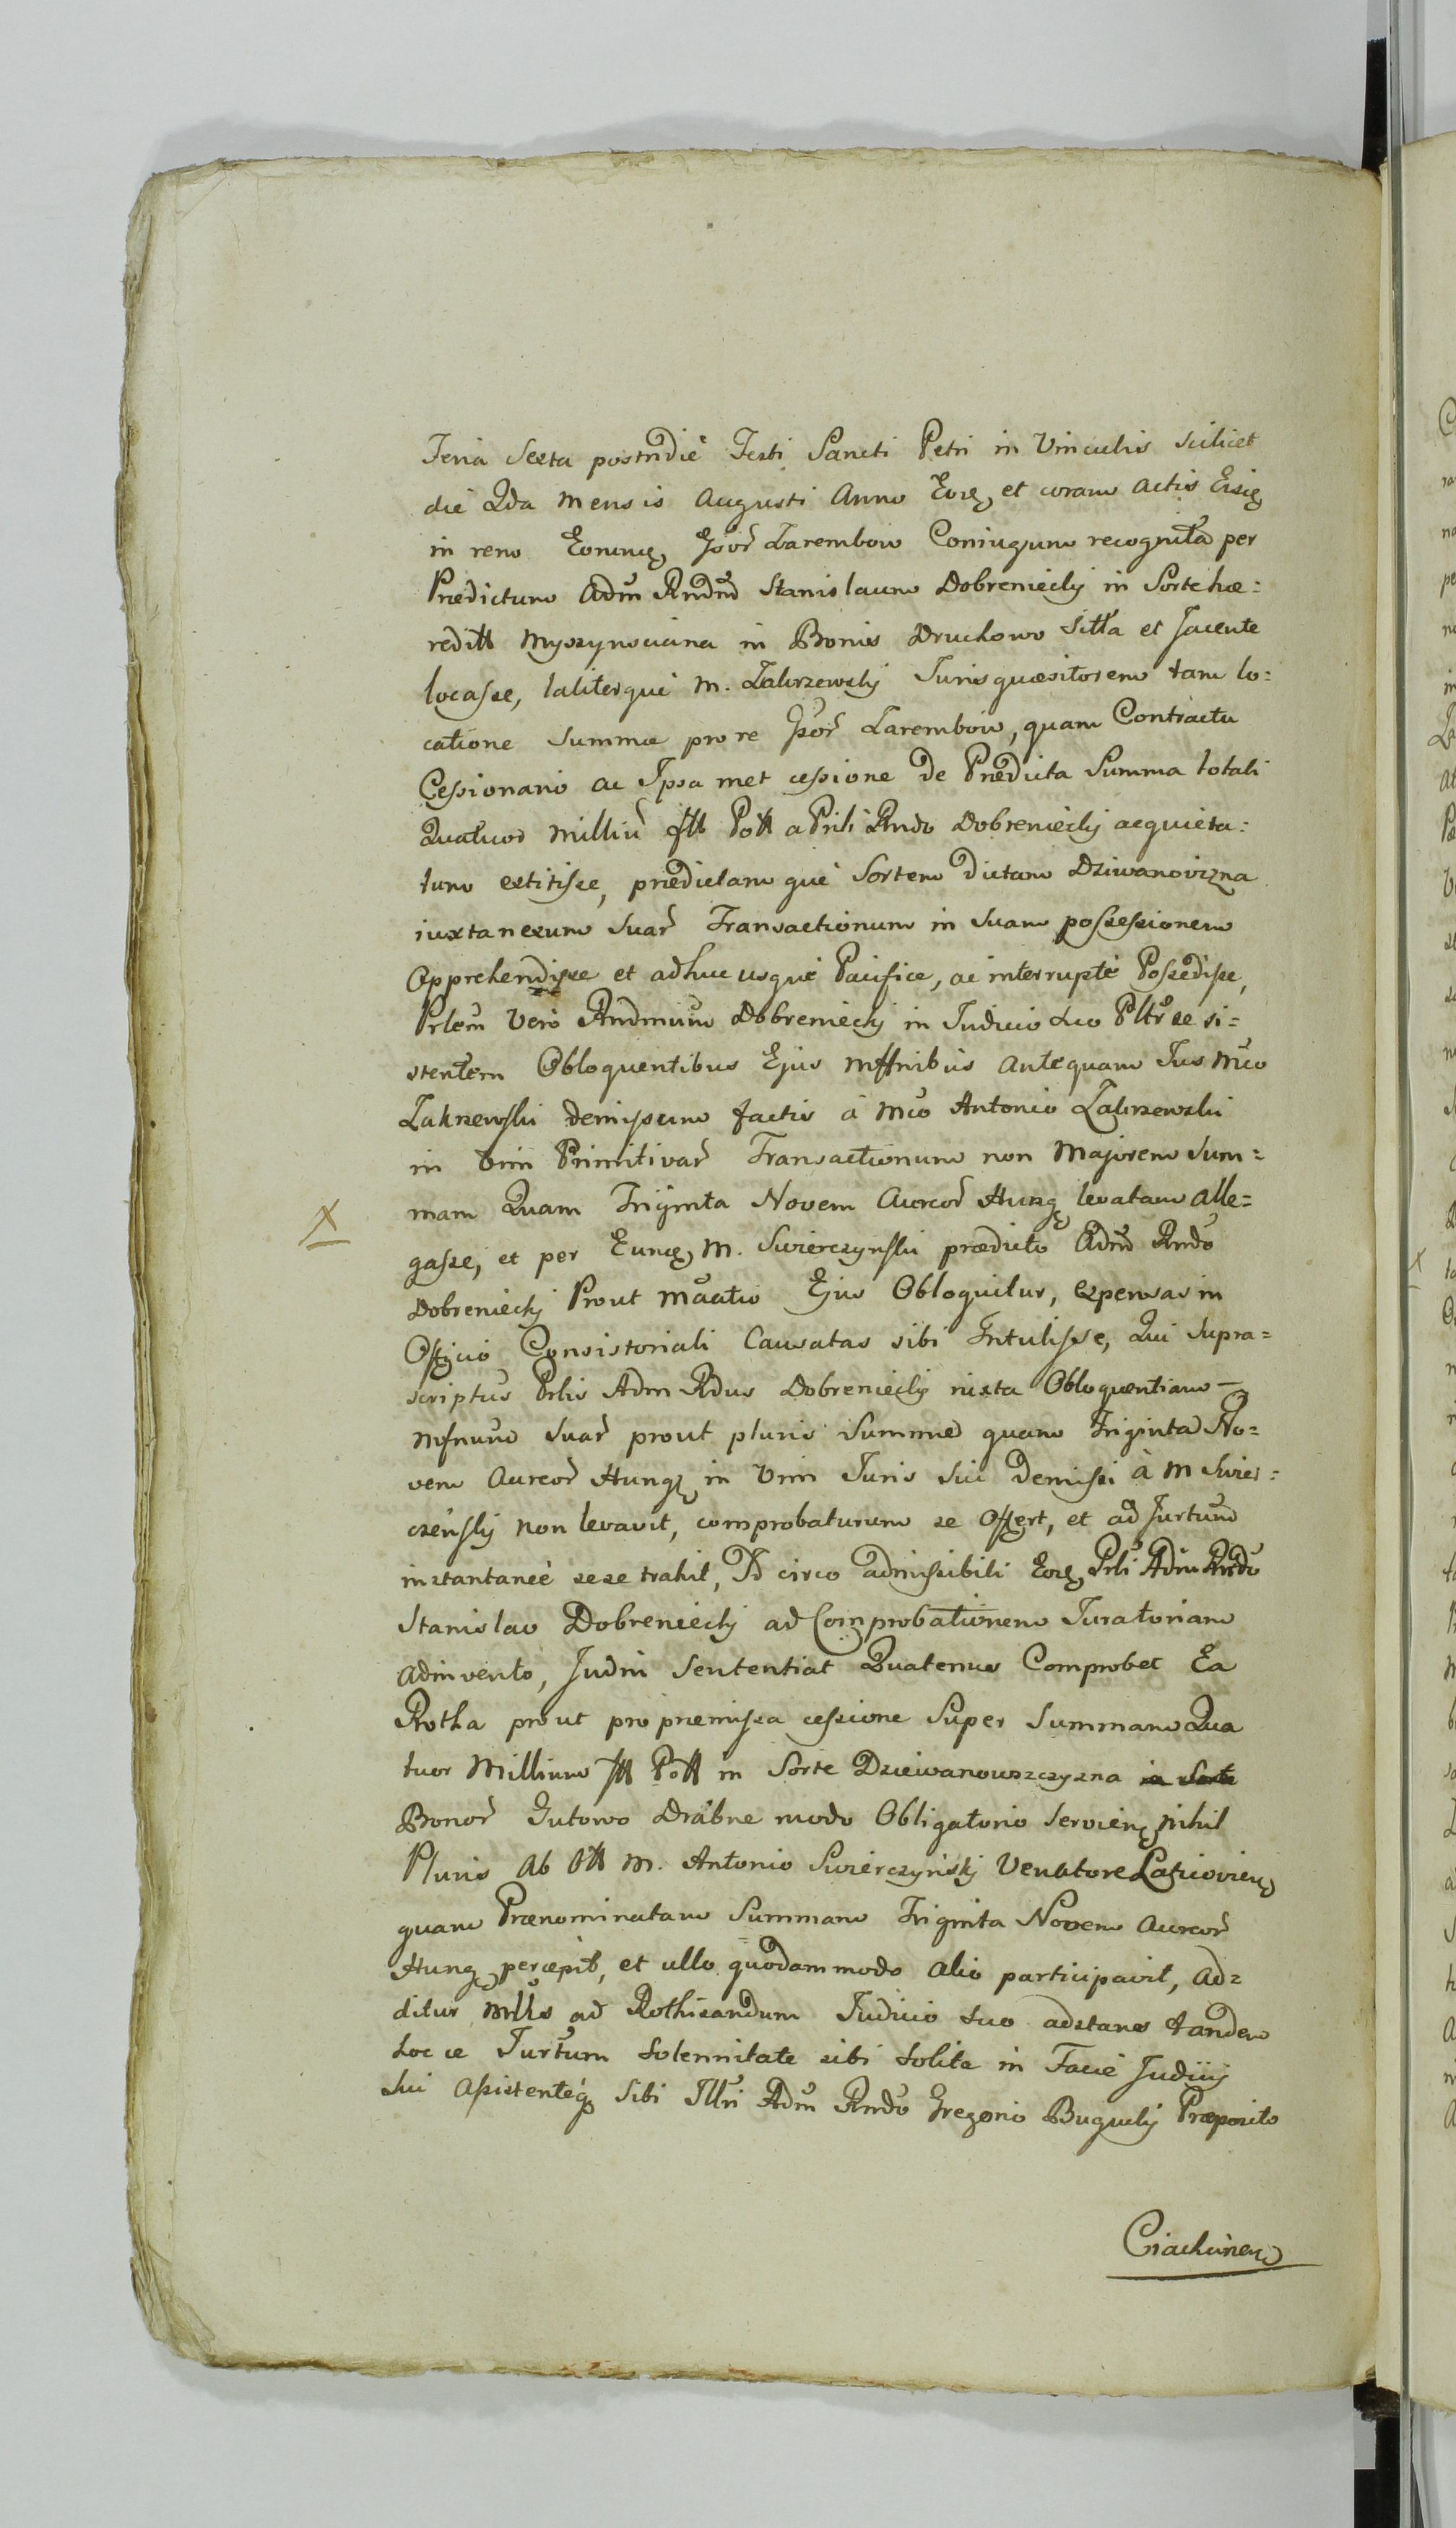 Feria Sexta postridie Festi Sancti Petri in Vinculis scilicet
die 2da Mensis Augusti Anno Eoqz et coram Actis Eisqz
in rem Eorumqz Gsor̃ Zarembow Coniugum recognita per
Prædictum Adm̃ Rndũm Stanislaum Dobreniecky in Sorte hæ=
redit͠t Myszynscizna in Bonis Druchowo Sitta et Jacente
locasse, taliterque M. Zakrzewsky Jurisquæsitorem tam lo=
catione Summæ pro re Gsor̃ Zarembow, quam Contractu
Cessionario ac Ipsa met cessione de Prædicta Summa totali
Quatuor Milliũ fll Poll a Prli Rndo Dobreniecky acquieta=
tum extitisse, prædictamque Sortem dictam Dziwanovizna
iuxta nexum Suar̃ Transactionum in Suam possessionem
Apprehendisse et adhuc usque Pacifice, ac interrupte Possedisse,
Prlem Vero Rndmum Dobreniecky in Judicio suo Pltr̃ se si=
stentem Obloquentibus Ejus mffnibus antequam Jus Mco
Zakrzewski demissum factis à Mco Antonio Zakrzewski
in Vim Primitivar̃ Transactionum non Majorem Sum=
mam Quam Triginta Novem Aureor̃ Hungz levatam alle=
X
gasse, et per Eumqz M. Swierczynski prædicto Adm̃ Rndo
Dobreniecky Prout mãatio Ejus Obloquitur, expensas in
Officio Consistoriali Causatas sibi Intulisse, Qui Supra=
scriptus Prlis Adm Rdus Dobreniecky iuxta Obloquentiam
mfnum Suar̃ prout pluris Summæ quam Triginta No=
vem Aureor̃ Hungz in Vim Juris Sui Demissi à M Swier=
czensky non levavit, comprobaturum se offert, et ad Jurtum
instantanee sese trahit, Id circo admissibili Eoqz Prli Adm Rndo
Stanislao Dobreniecky ad Comprobationem Juratoriam
adinvento, Judm Sententiat Quatenus Comprobet Ea
Rotha prout pro præmissa cessione Super Summam Qua
tuor Millium fll Poll in Sorte Dziewanowszczyzna in Sorte
Bonor̃ Gutowo Drabne modo Obligatorio Servienz nihil
Pluris ab Oll M. Antonio Swierczynsky Venatore Laticovienz
quam Prænominatam Summam Triginta Novem Aureor̃
Hungz percæpit, et ullo quodammodo alio participavit, ad=
ditur ad Rothisandum Judicio suo adstans tandem
Jurtum Solennitate sibi solita in Facie Judicij
sui Assistenteqz Sibi Illri Adm Rndo Gregorio Bugucky Præposito
Ciachcinenz